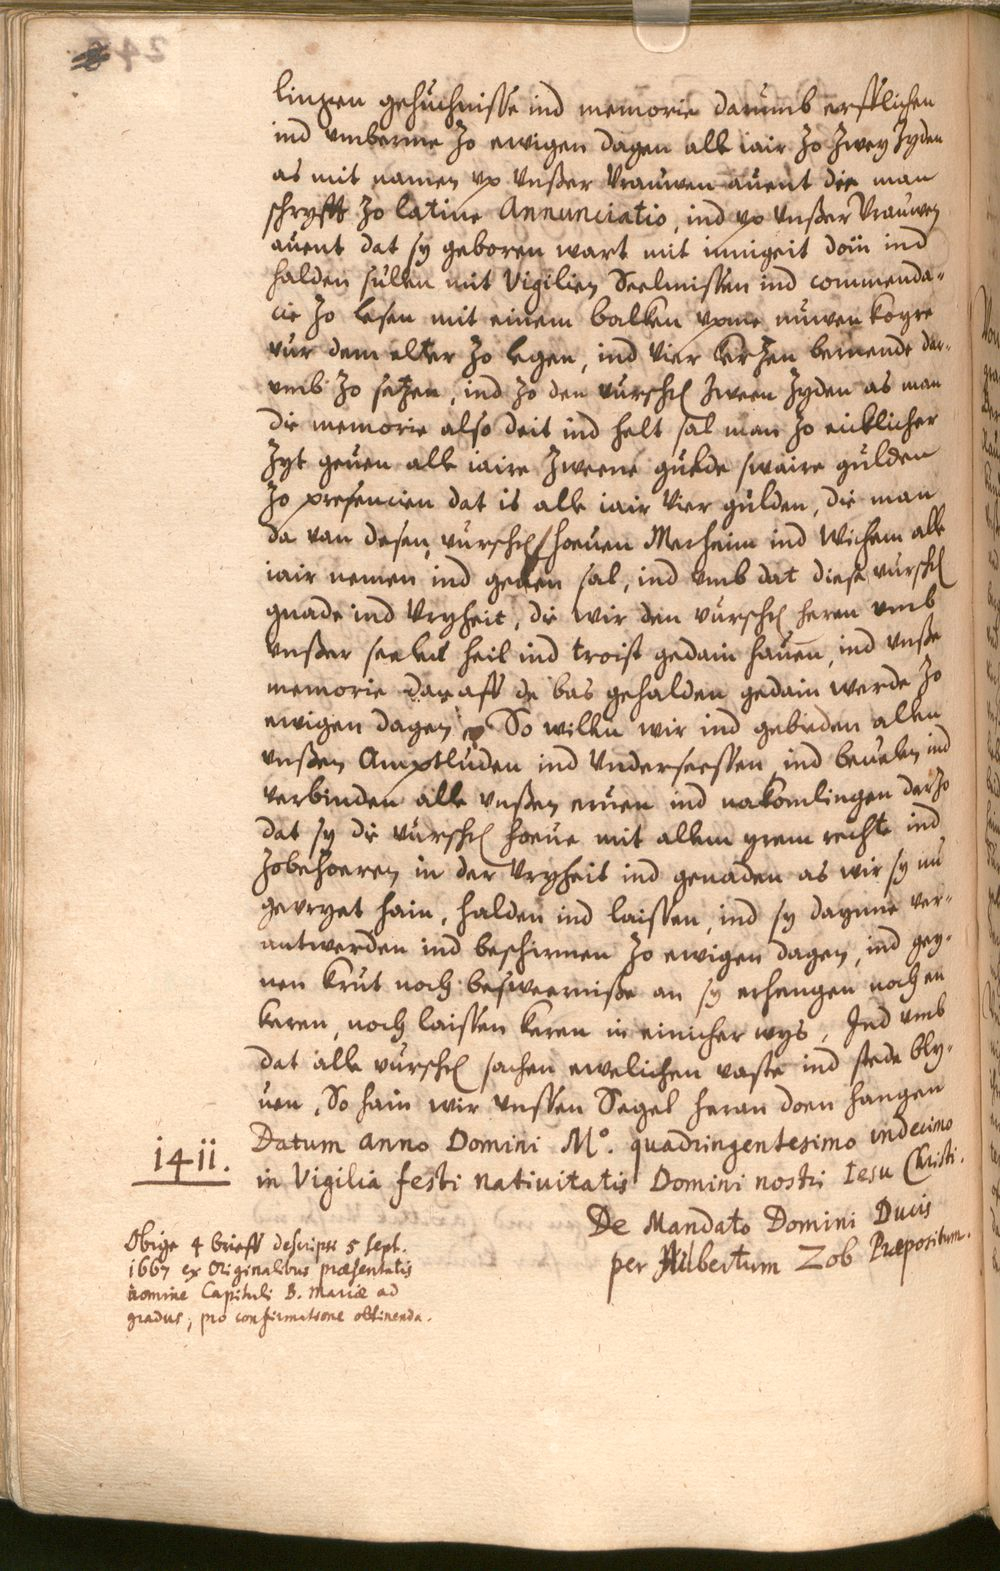 lingen gehüchnisse ind memorie darumb erfflichen
ind umberme zo ewigen dagen alle iair zo zwey zyden
as mit namen up unßer Vrauwen auent die man
schryfft zo latine Annunciatio, ind up unßer Vrauwen
auent dat sy geboren wart mit innigeit doin ind
halden sullen mit Vigilien Seelmissen ind commenda-
cie zo lesen mit einem balken upme nuwen koyre
vur dem elter zo legen, ind vier kertzen bernende dar-
umb zo setzen, ind zo den vurschr zween zyden as man
die memorie also deit ind helt sal man zo eicklicher
zyt geuen alle iaire zweene gulde swaire gulden
zo presencien dat is alle iair vier gulden, die man
da van desen vurschr hoeuen Merheim ind Wichem alle
iair nemen ind geuen sal, ind umb dat diese vurschr
gnade ind Vryheit, die wir den vurschr heren umb
unßer seelen heil ind troist gedain hauen, ind unße
memorie daraff de bas gehalden gedain werde zo
ewigen dagen So willen wir ind gebieden allen
unßen Amptluden ind Underseessen ind beuelen ind
verbinden alle unßen eruen ind nakomlingen darzo
dat sy die vurschr hoeue mit allem yrem rechte ind
zobehoeren in der Vryheit ind genaden as wir sy nu
gevryet hain, halden ind laissen, ind sy darynne ver-
antwerden ind beschirmen zo ewigen dagen, ind gey-
nen krut noch besweerniße an sy erhangen noch en
keren, noch laissen keren in einicher wys, Ind umb
dat alle vurschr sachen ewelichen vaste ind stede bly-
uen, So hain wir unssen Segel heran doen hangen
Datum anno Domini M.º quadringentesimo undecimo
1411.
in Vigilia festi natiuitatis Domini nostri Iesu Christi.
De Mandato Domini Ducis
per Hubertum Zob Præpositum.
Obige 4 brieff descripsi 5 Sept.
1667 ex Originalibus præsentatis
nomine Capituli B. Mariæ ad
gradus, pro confirmatione obtinenda.